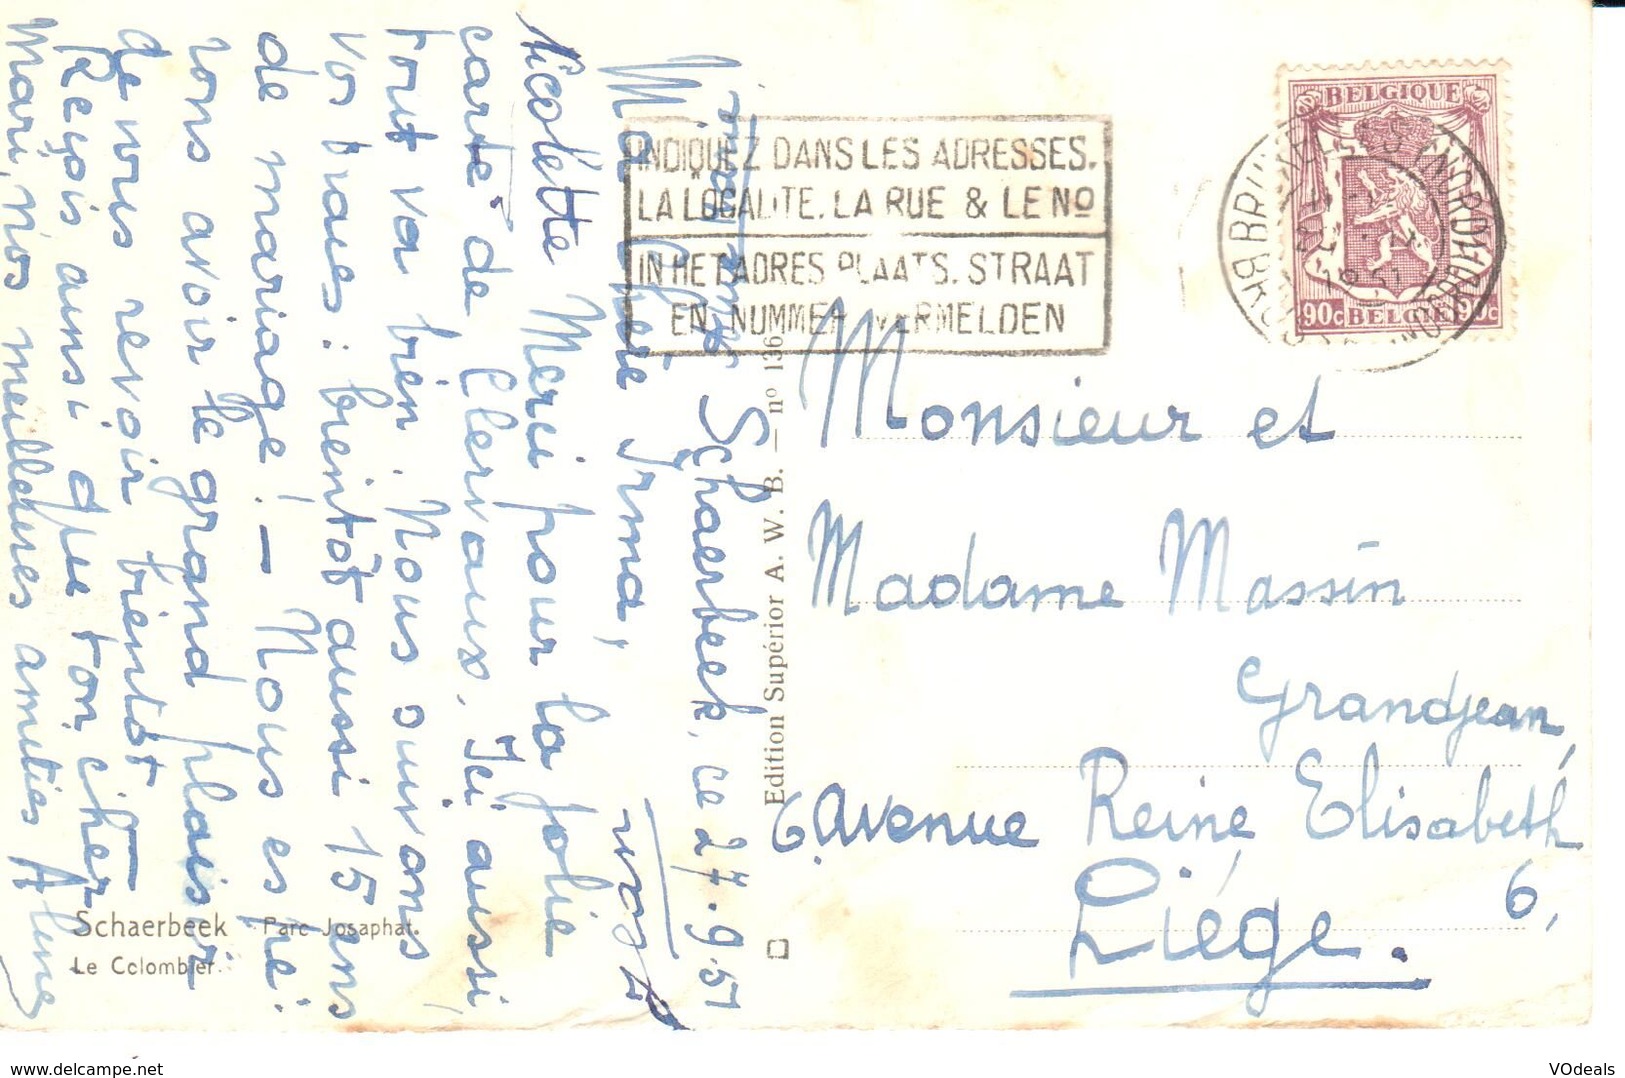 Schaerbeek, ce 27.9.51
Ma chère Irma,
Nicolette Merci pour la jolie
carte de Clervaux. Ici aussi,
tout va bien. Nous suivons
vos traces : bientôt aussi 15 ans
de mariage! — Nous espé-
rons avoir le grand plaisir
de vous revoir bientôt
Reçois ainsi que ton cher
mari, nos meilleures amitiés
Schaerbeek Parc Josaphat.
Le Colombier.
Edition Supérior A. W. B. — nº 136
INDIQUEZ DANS LES ADRESSES.
LA LOCALITE. LA RUE & LE No
IN HET ADRES PLAATS. STRAAT
EN NUMMER VERMELDEN
BELGIQUE
90c BELGIE 90c
Monsieur et
Madame Massin
Grandjean,
6, Avenue Reine Elisabeth
6,
Liége.
www.delcampe.net
VOdeals